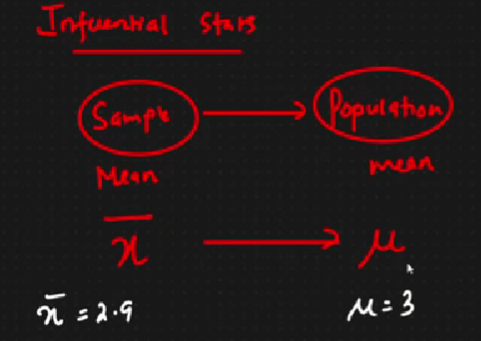 Infuential Stats
Sample → Population
Mean mean
x̄ → μ
x̄ = 2.9 μ = 3